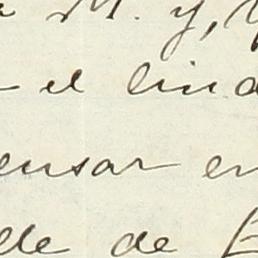 M. y,
el lind
ensar en
de de E